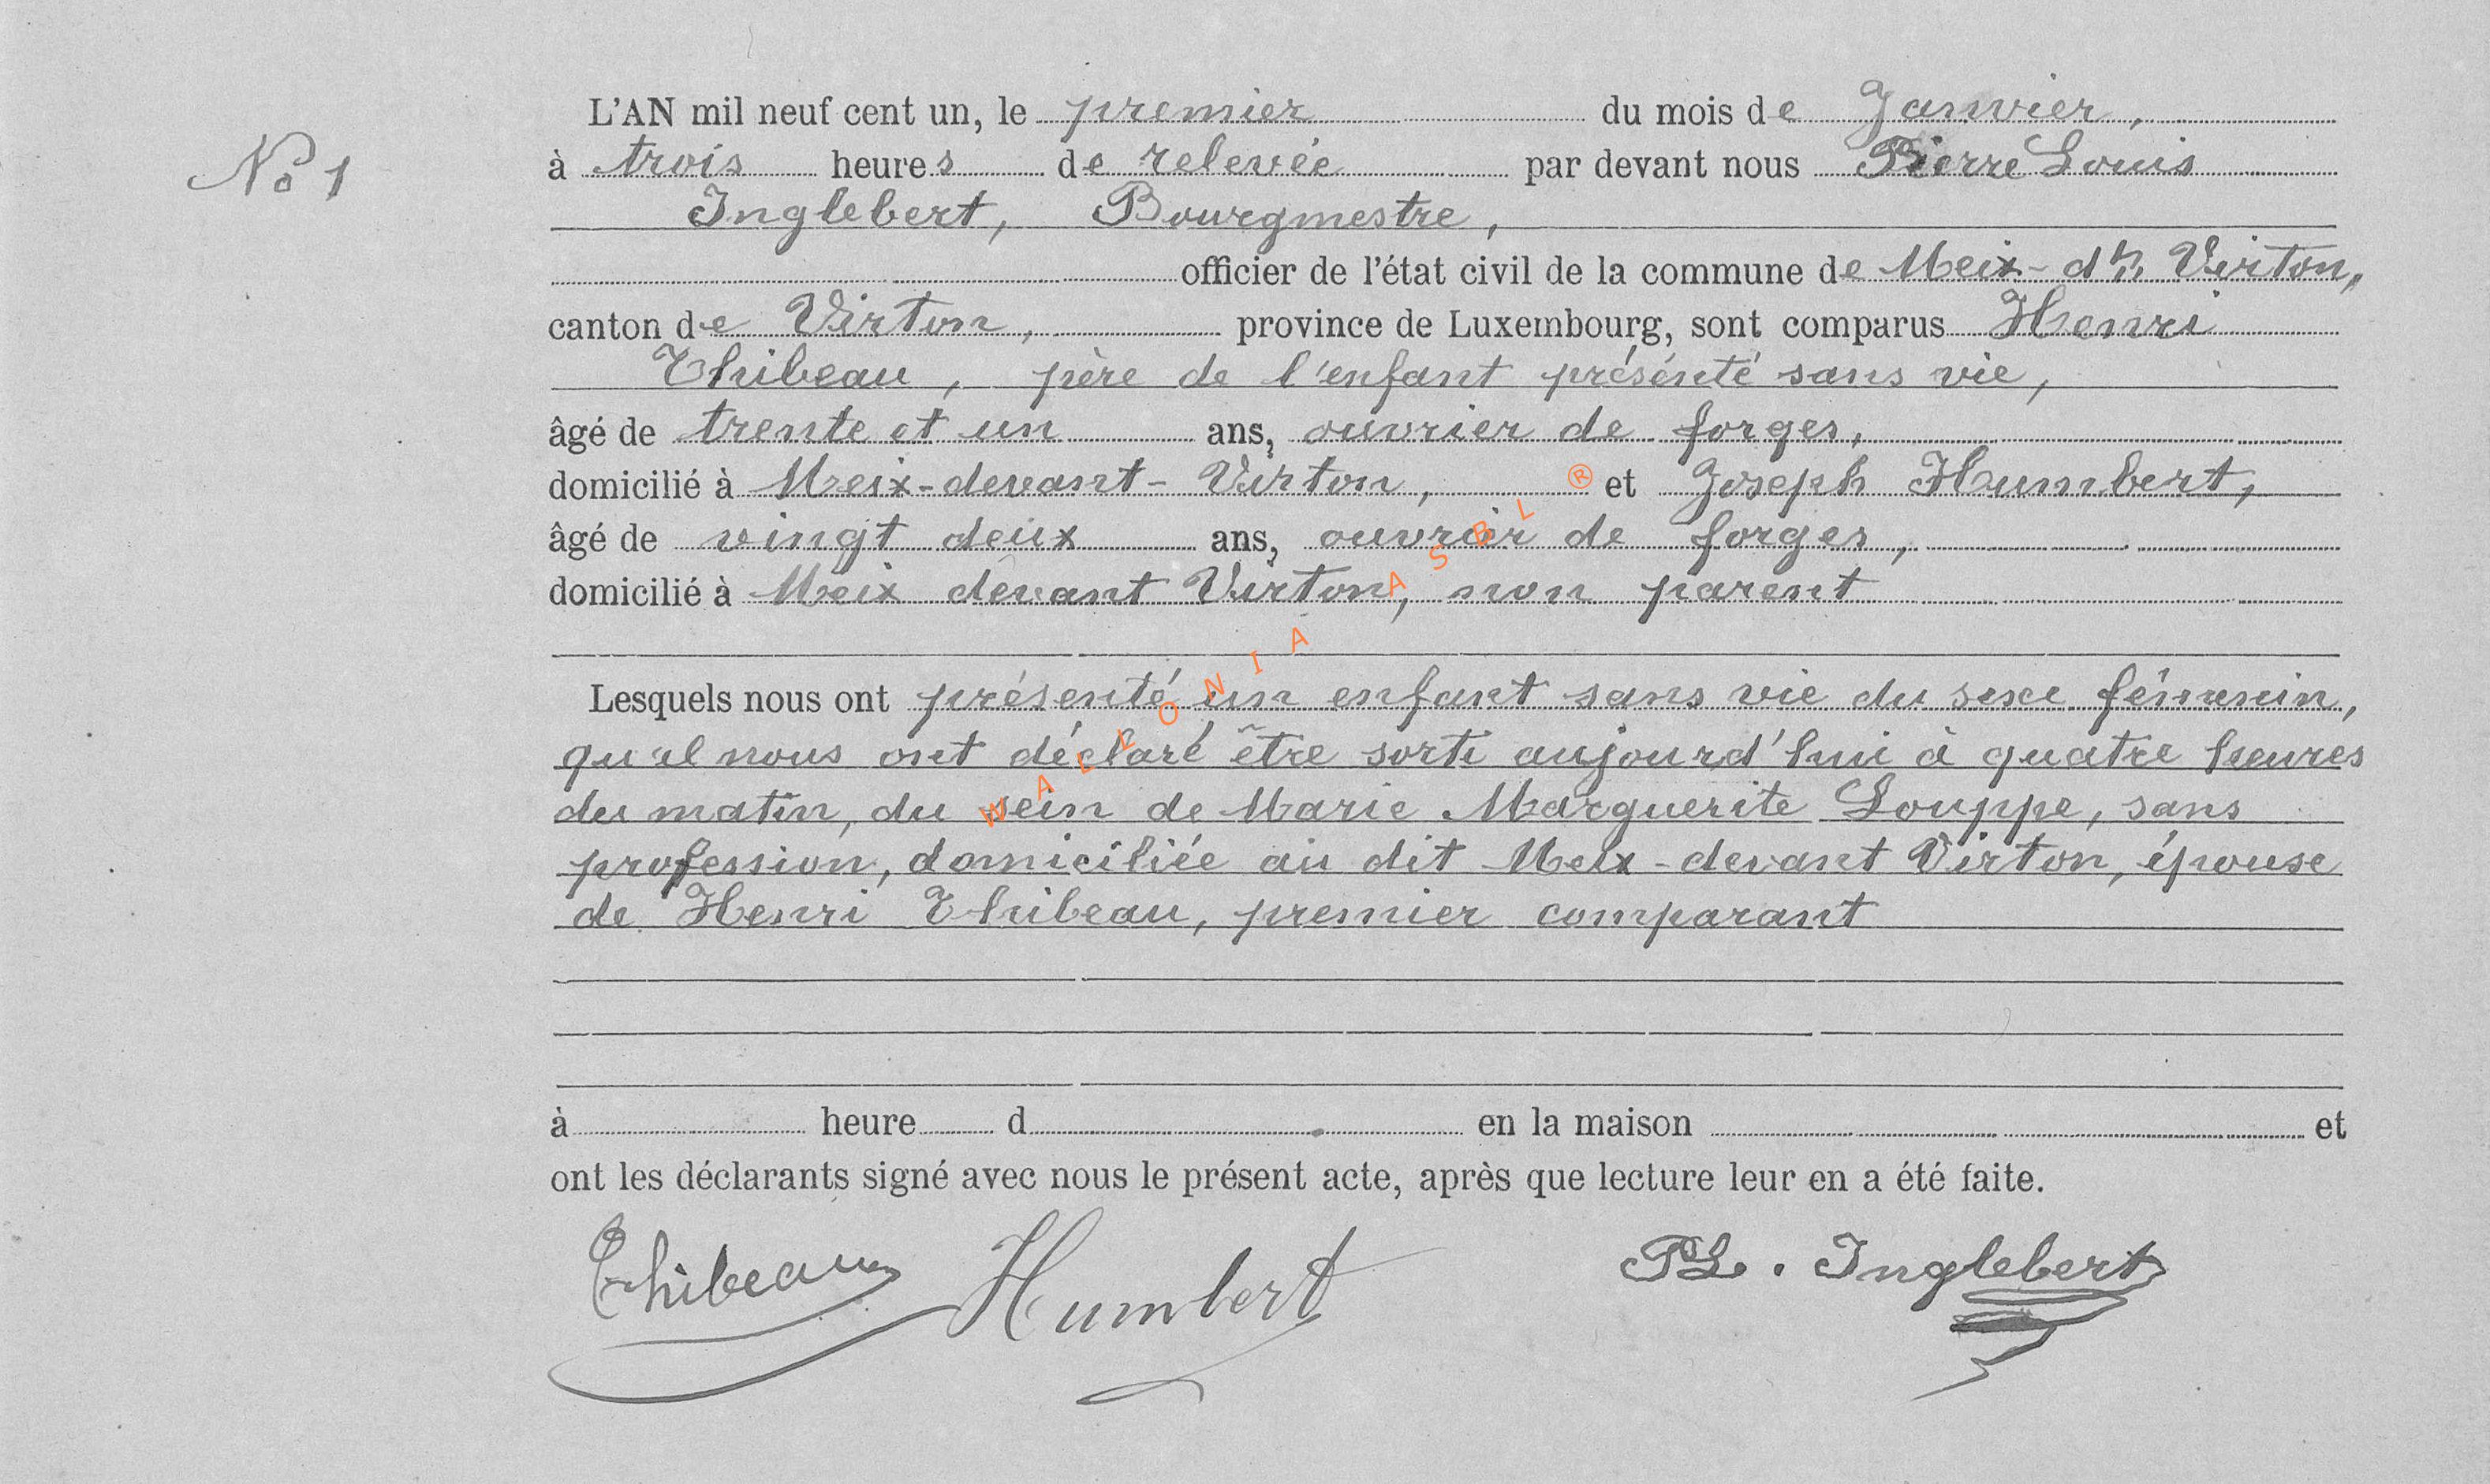 No 1
L'AN mil neuf cent un, le premier du mois de Janvier,
à trois heures de relevée par devant nous Pierre Louis
Inglebert, Bourgmestre,
officier de l'état civil de la commune de Meix-dt Virton,
canton de Virton, province de Luxembourg, sont comparus Henri
Thibeau, père de l'enfant présenté sans vie,
âgé de trente et un ans, ouvrier de forges,
domicilié à Meix-devant-Virton, et Joseph Humbert,
âgé de vingt deux ans, ouvrier de forges,
domicilié à Meix devant Virton, non parent
Lesquels nous ont présenté un enfant sans vie du sexe féminin,
qu'il nous ont déclaré être sorti aujourd'hui à quatre heures
du matin, du sein de Marie Marguerite Louppe, sans
profession, domiciliée au dit Meix-devant Virton, épouse
de Henri Thibeau, premier comparant
à heure d en la maison et
ont les déclarants signé avec nous le présent acte, après que lecture leur en a été faite.
Thibeau Humbert PL. Inglebert
WALLONIA ASBL ®